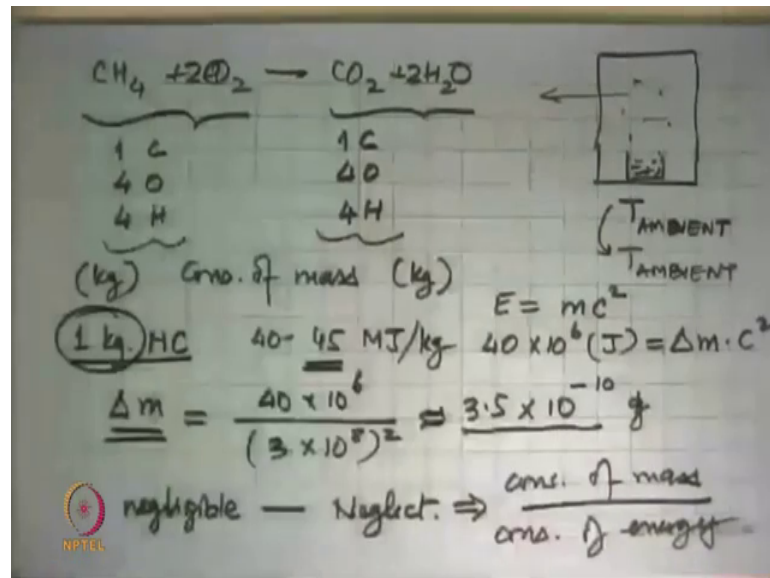 CH₄ + 2O₂ — CO₂ + 2H₂O
1 C 1 C
4 O 4 O
4 H 4 H
T AMBIENT
T AMBIENT
(kg) Cons. of mass (kg)
E = mc²
1 kg. HC 40- 45 MJ/kg 40 × 10⁶ (J) = Δm · C²
Δm = 40 × 10⁶ / (3 × 10⁸)² = 3.5 × 10⁻¹⁰ g
negligible — Neglect. ⇒ cons. of mass
cons. of energy
NPTEL